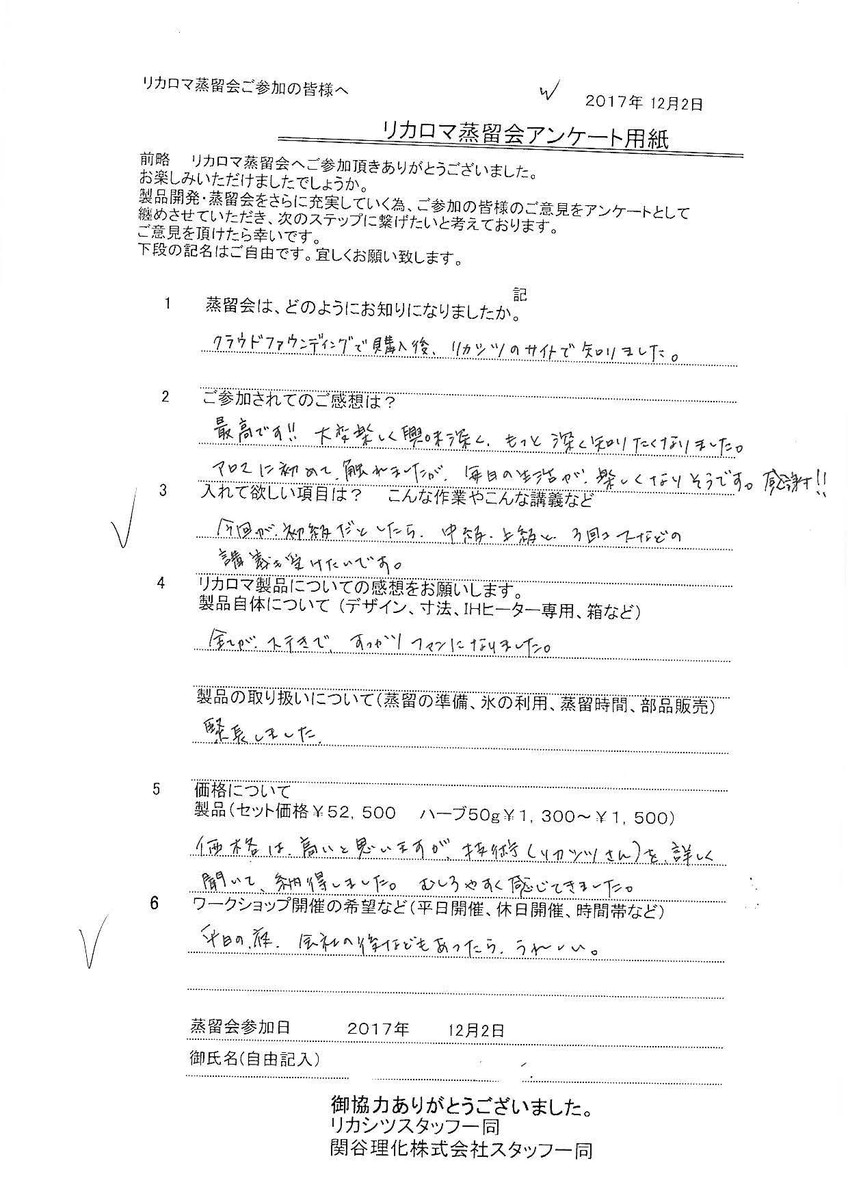 リカロマ蒸留会ご参加の皆様へ
2017年 12月2日
リカロマ蒸留会アンケート用紙
前略　リカロマ蒸留会へご参加頂きありがとうございました。
お楽しみいただけましたでしょうか。
製品開発・蒸留会をさらに充実していく為、ご参加の皆様のご意見をアンケートとして
纏めさせていただき、次のステップに繋げたいと考えております。
ご意見を頂けたら幸いです。
下段の記名はご自由です。宜しくお願い致します。
記
1　蒸留会は、どのようにお知りになりましたか。
クラウドファウンディングで購入後、リカシツのサイトで知りました。
2　ご参加されてのご感想は？
最高です!! 大変楽しく興味深く、もっと深く知りたくなりました。
アロマに初めて触れましたが、毎日の生活が楽しくなりそうです。感謝!!
3　入れて欲しい項目は？　こんな作業やこんな講義など
今回が初級だとしたら、中級、上級と、3回コースなどの
講義が受けたいです。
4　リカロマ製品についての感想をお願いします。
製品自体について（デザイン、寸法、IHヒーター専用、箱など）
全てが、ステキで、すっかりファンになりました。
製品の取り扱いについて（蒸留の準備、氷の利用、蒸留時間、部品販売）
緊張しました。
5　価格について
製品（セット価格￥52,500　ハーブ50g￥1,300～￥1,500）
価格は、高いと思いますが、技術（リカシツさん）を、詳しく
聞いて、納得しました。むしろやすく感じてきました。
6　ワークショップ開催の希望など（平日開催、休日開催、時間帯など）
平日の夜、会社の後などもあったら、うれしい。
蒸留会参加日　2017年　12月2日
御氏名（自由記入）
御協力ありがとうございました。
リカシツスタッフ一同
関谷理化株式会社スタッフ一同